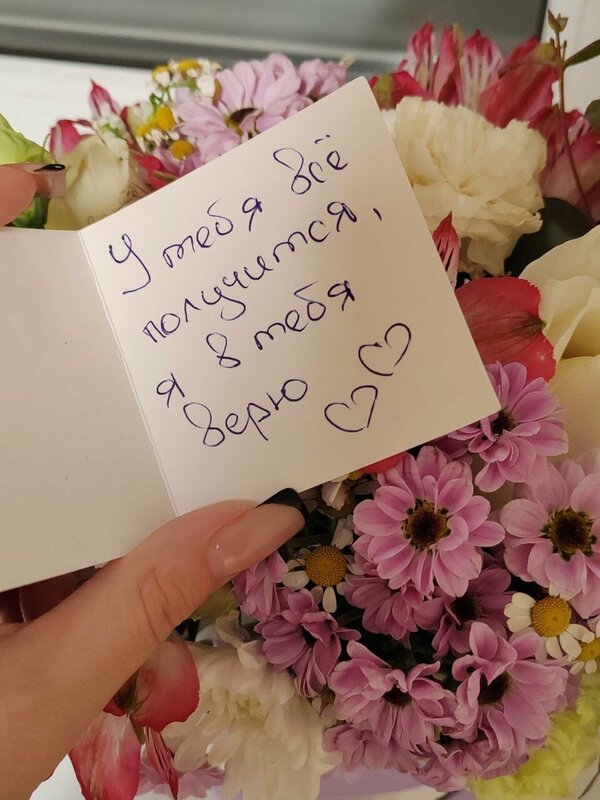 У тебя всё
получится,
я в тебя
верю ♡♡